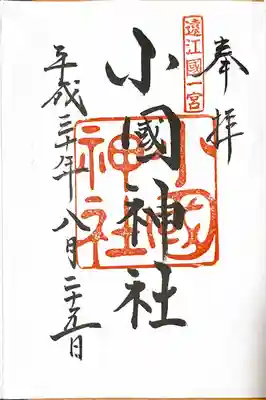 奉拝
遠江國一宮
小國神社
小國神社
平成三十年八月二十五日